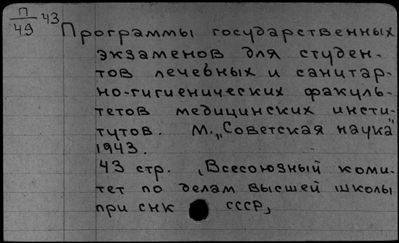 П/49 43
Программы государственных
экзаменов для студен-
тов лечебных и санитар-
но-гигиенических факуль-
тетов медицинских инсти-
тутов. М. „Советская наука"
1943.
43 стр. (Всесоюзный коми-
тет по делам высшей школы
при СНК СССР)